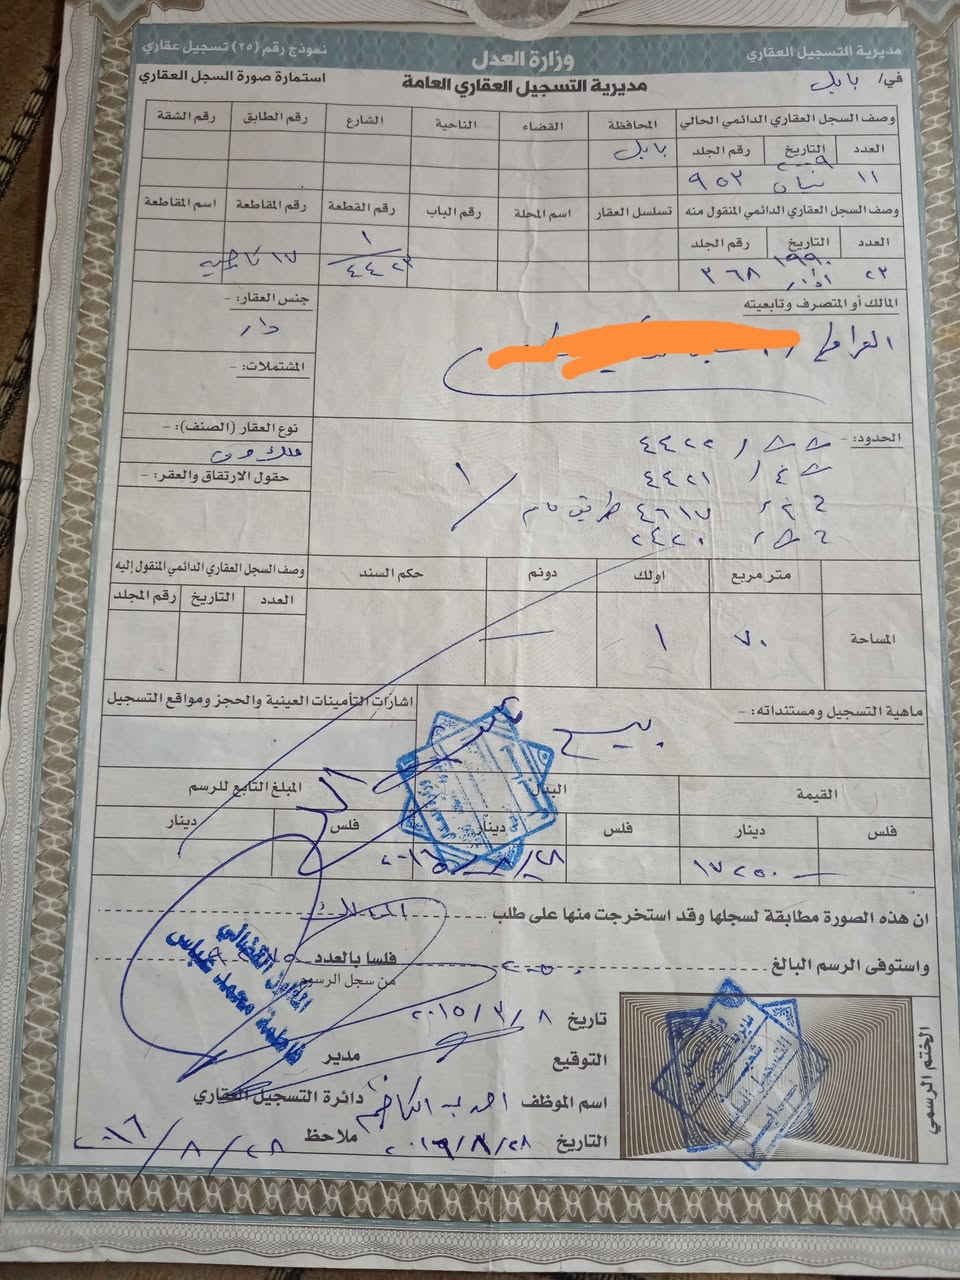 مديرية التسجيل العقاري
وزارة العدل
نموذج رقم (٢٥) تسجيل عقاري
في/ بابل
مديرية التسجيل العقاري العامة
استمارة صورة السجل العقاري
وصف السجل العقاري الدائمي الحالي المحافظة القضاء الناحية الشارع رقم الطابق رقم الشقة
العدد التاريخ رقم الجلد بابل
١١ نيسان ٩٥٣
وصف السجل العقاري الدائمي المنقول منه تسلسل العقار اسم المحلة رقم الباب رقم القطعة رقم المقاطعة اسم المقاطعة
العدد التاريخ رقم الجلد
٢٣ ١٩٩٠ اذار ٣٦٨ ١/٤٤٢٣ ١٧ تاجيه
المالك أو المتصرف وتابعيته
جنس العقار: -
دار
المشتملات: -
نوع العقار (الصنف): -
ملك صرف
حقول الارتفاق والعقر: -
الحدود: -
٤٤٢٢
٤٤٢١
٤٦١٧ طريق عام / ١
٢٤٢٠
متر مربع اولك دونم حكم السند وصف السجل العقاري الدائمي المنقول إليه
العدد التاريخ رقم المجلد
المساحة ٧٠ ١
ماهية التسجيل ومستنداته: -
بيع
اشارات التأمينات العينية والحجز ومواقع التسجيل
القيمة البدل المبلغ التابع للرسم
فلس دينار فلس دينار فلس دينار
١٧٢٥٠
٢٠١٦/٨/٢٨
ان هذه الصورة مطابقة لسجلها وقد استخرجت منها على طلب المالك
واستوفى الرسم البالغ ٢٠٠٠ فلسا بالعدد
من سجل الرسوم
تاريخ ٢٠١٥/٣/٨
التوقيع
مدير
اسم الموظف احمد عبد الكاظم
دائرة التسجيل العقاري
التاريخ ٢٠١٦/٨/٢٨
ملاحظ
٢٠١٦/٨/٢٨
الختم الرسمي
المعاون القضائي
فاطمة محمد عباس